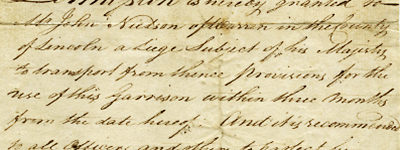 is hereby granted to
Mr John Nielson of Warren in the County
of Lincoln a Liege Subject of his Majesty
to transport from thence provisions for the
use of this Garrison within three months
from the date hereof. And it is recommended
to all Officers and others to